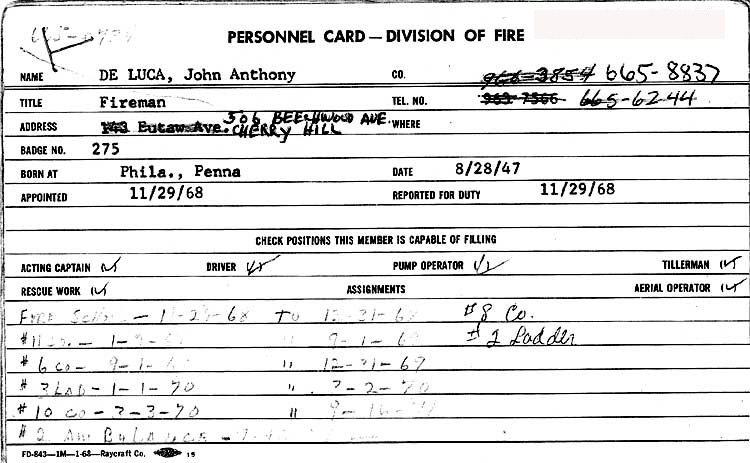 PERSONNEL CARD — DIVISION OF FIRE
NAME DE LUCA, John Anthony CO. 968-3854 665-8837
TITLE Fireman TEL. NO. 963-7566 665-6244
306 BEECHWOOD AVE.
ADDRESS 143 Eutaw Ave. CHERRY HILL WHERE
BADGE NO. 275
BORN AT Phila., Penna DATE 8/28/47
APPOINTED 11/29/68 REPORTED FOR DUTY 11/29/68
CHECK POSITIONS THIS MEMBER IS CAPABLE OF FILLING
ACTING CAPTAIN DRIVER PUMP OPERATOR TILLERMAN
RESCUE WORK ASSIGNMENTS AERIAL OPERATOR
TO 12-31-68 #8 Co.
#2 Ladder
#6 Co - 9-1- " 12-31-69
#3 LAD - 1-1-70 "
#10 Co - 3-3-70 "
#2
FD-843—1M—1-68—Raycraft Co. 15